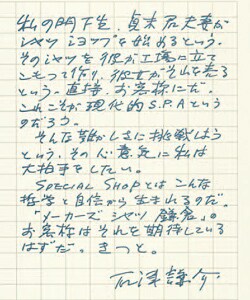 私の門下生、貞末君夫妻が
シャツショップを始めるという。
そのシャツを彼が工場に立て
こもって作り、彼女がそれを売る
という。直接、お客様にだ。
これこそが現代的S.P.Aという
のだろう。
そんな難かしさに挑戦しよう
という、その心意気に私は
大拍手をしたい。
SPECIAL SHOPとはこんな
哲学と自信から生まれるのだ。
「メーカーズ シャツ 鎌倉」の
お客様はそれを期待している
はずだ。きっと。
石津謙介